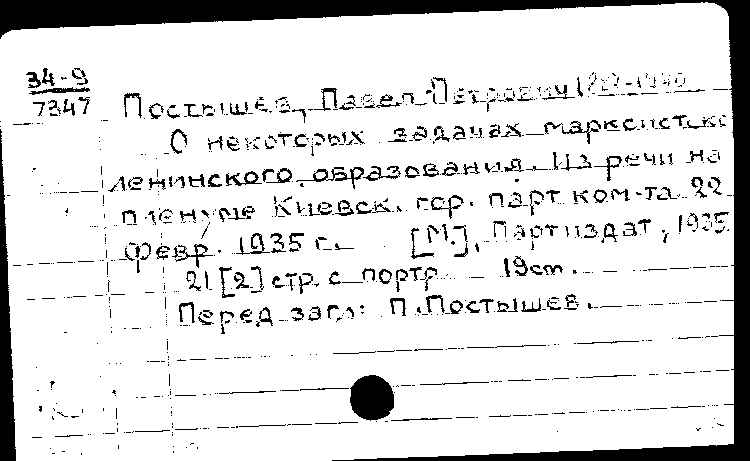 34-9
7347
Постышев, Павел Петрович
О некоторых задачах марксистско
ленинского образования. Из речи на
пленуме Киевск. гор. парт ком-та 22
февр. 1935 г. [М.], Партиздат, 1935.
21 [2] стр. с портр 19cm.
Перед загл: П. Постышев.